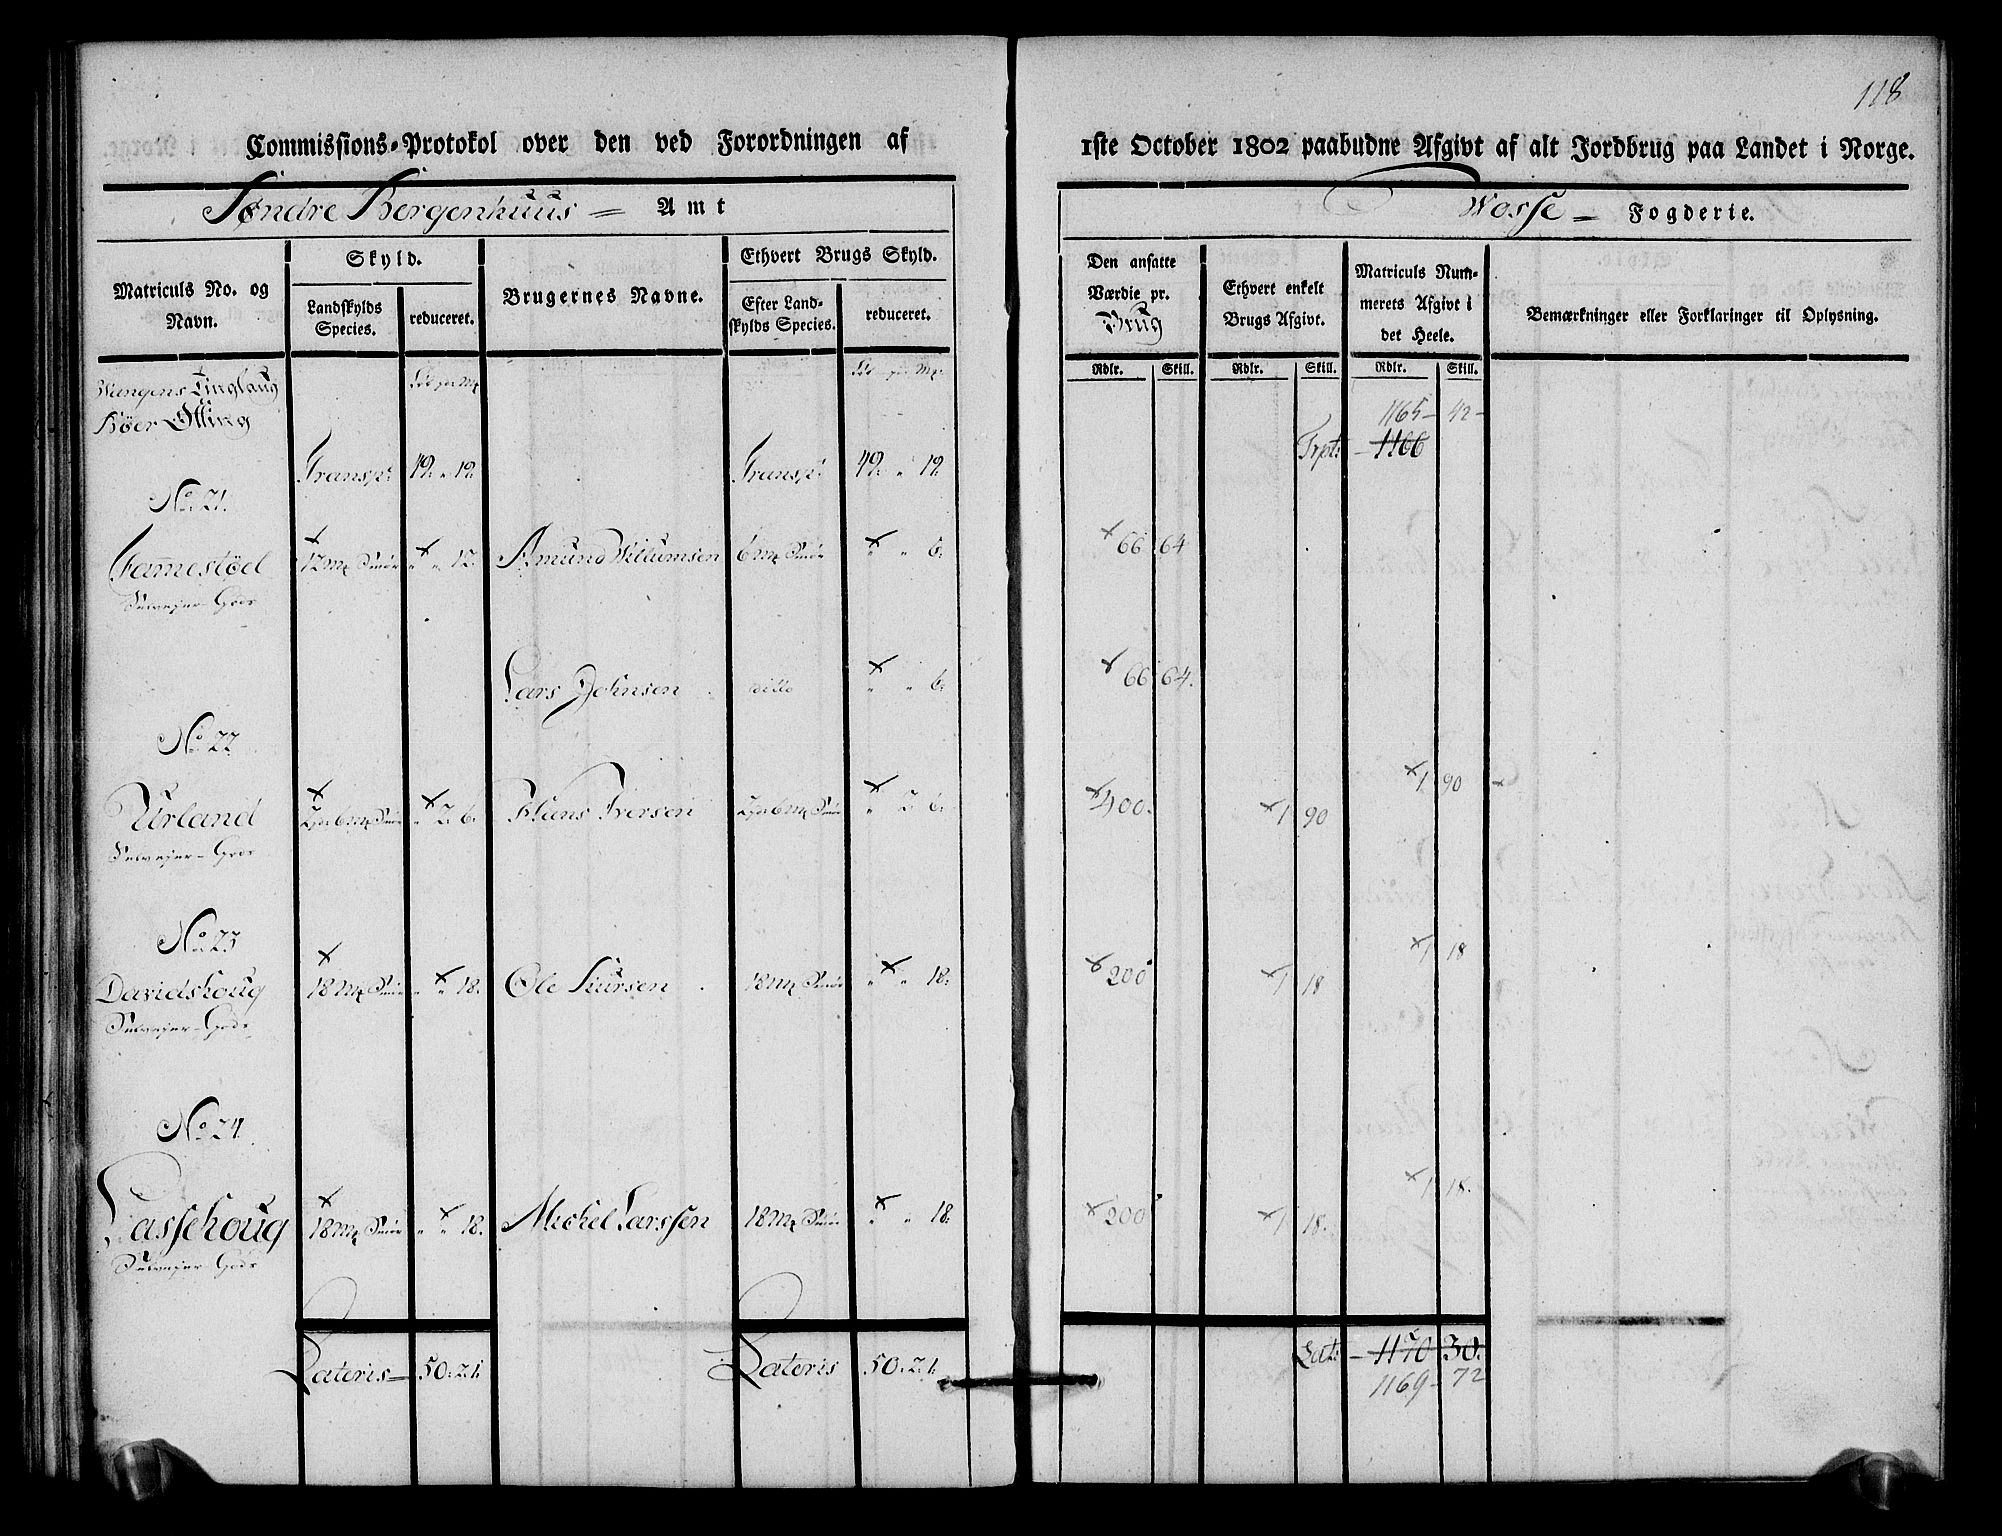 118
Commissions-Protokol over den ved Forordningen af 1ste October 1802 paabudne Afgivt af alt Jordbrug paa Landet i Norge.
Søndre Bergenhuus Amt
Wosse Fogderie.
Matriculs No. og Navn.
Skyld.
Landskylds Species.
reduceret.
Brugernes Navne.
Ethvert Brugs Skyld.
Efter Landskylds Species.
reduceret.
Den ansatte Værdie pr. Brug
Ethvert enkelt Brugs Afgivt.
Matriculs Nummerets Afgivt i det Heele.
Bemærkninger eller Forklaringer til Oplysning.
Rdlr. Skill. Rdlr. Skill. Rdlr. Skill.
Wangens Tinglaug
1165 - 42 -
Transpt: 49. " 19. Transpt: 49. " 19. Trpt: - 1166
No. 21.
Famestøel 12 Mk Smör " " 12. Amund Villumsen 6 Mk Smör " " 6. 66 64
Selvejer-Gods
Lars Johnsen ditto " " 6. 66 64.
No. 22
Urland " 2. 6. Hans Iversen " 2. 6. 400. 1 90 1 90
Selvejer-Gods
No. 23
Davidshoug 18 Mk Smör " " 18. Ole Siursen 18 Mk Smör " " 18. 200 1 18 1 18
Selvejer-Gods
No. 24.
Lassehoug 18 Mk Smör " " 18. Michel Larssen 18 Mk Smör " " 18. 200 1 18. 1 18.
Selvejer-Gods
Lateris 50. 2. 1. Lateris 50. 2. 1. Lat: - 1170 30.
1169 - 72